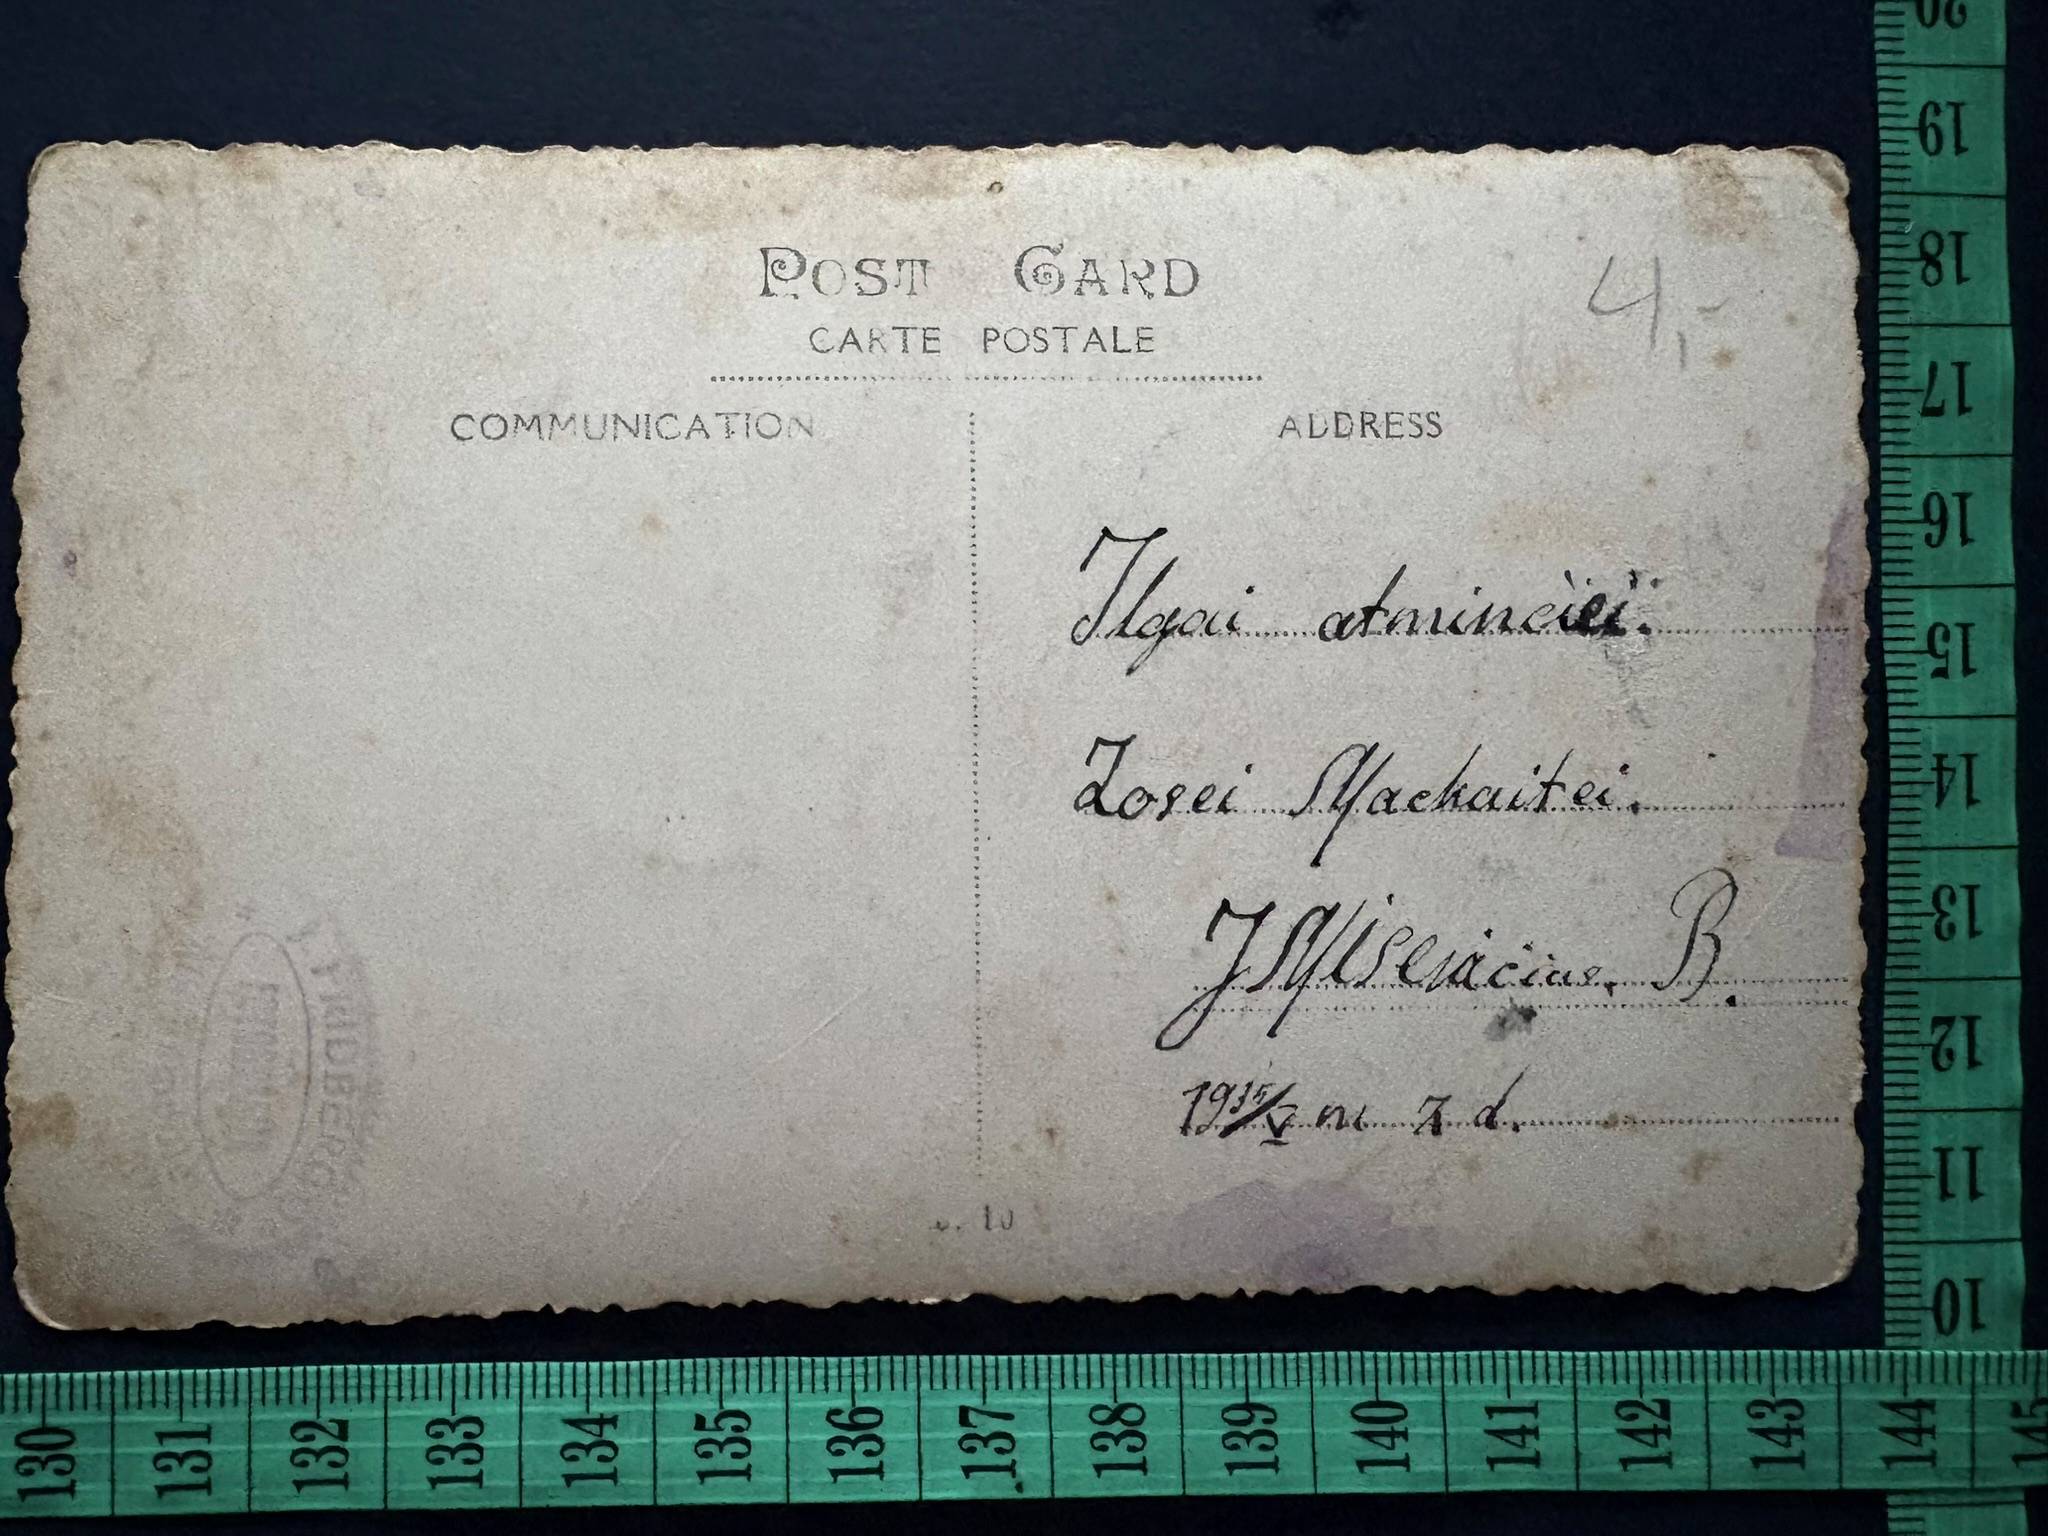 POST CARD
CARTE POSTALE
COMMUNICATION
ADDRESS
4,-
Ilgai atminčiei.
Zosei Mackaitei.
J
B.
m 7 d.
20
19
18
17
16
15
14
13
12
11
10
130 131 132 133 134 135 136 137 138 139 140 141 142 143 144 145